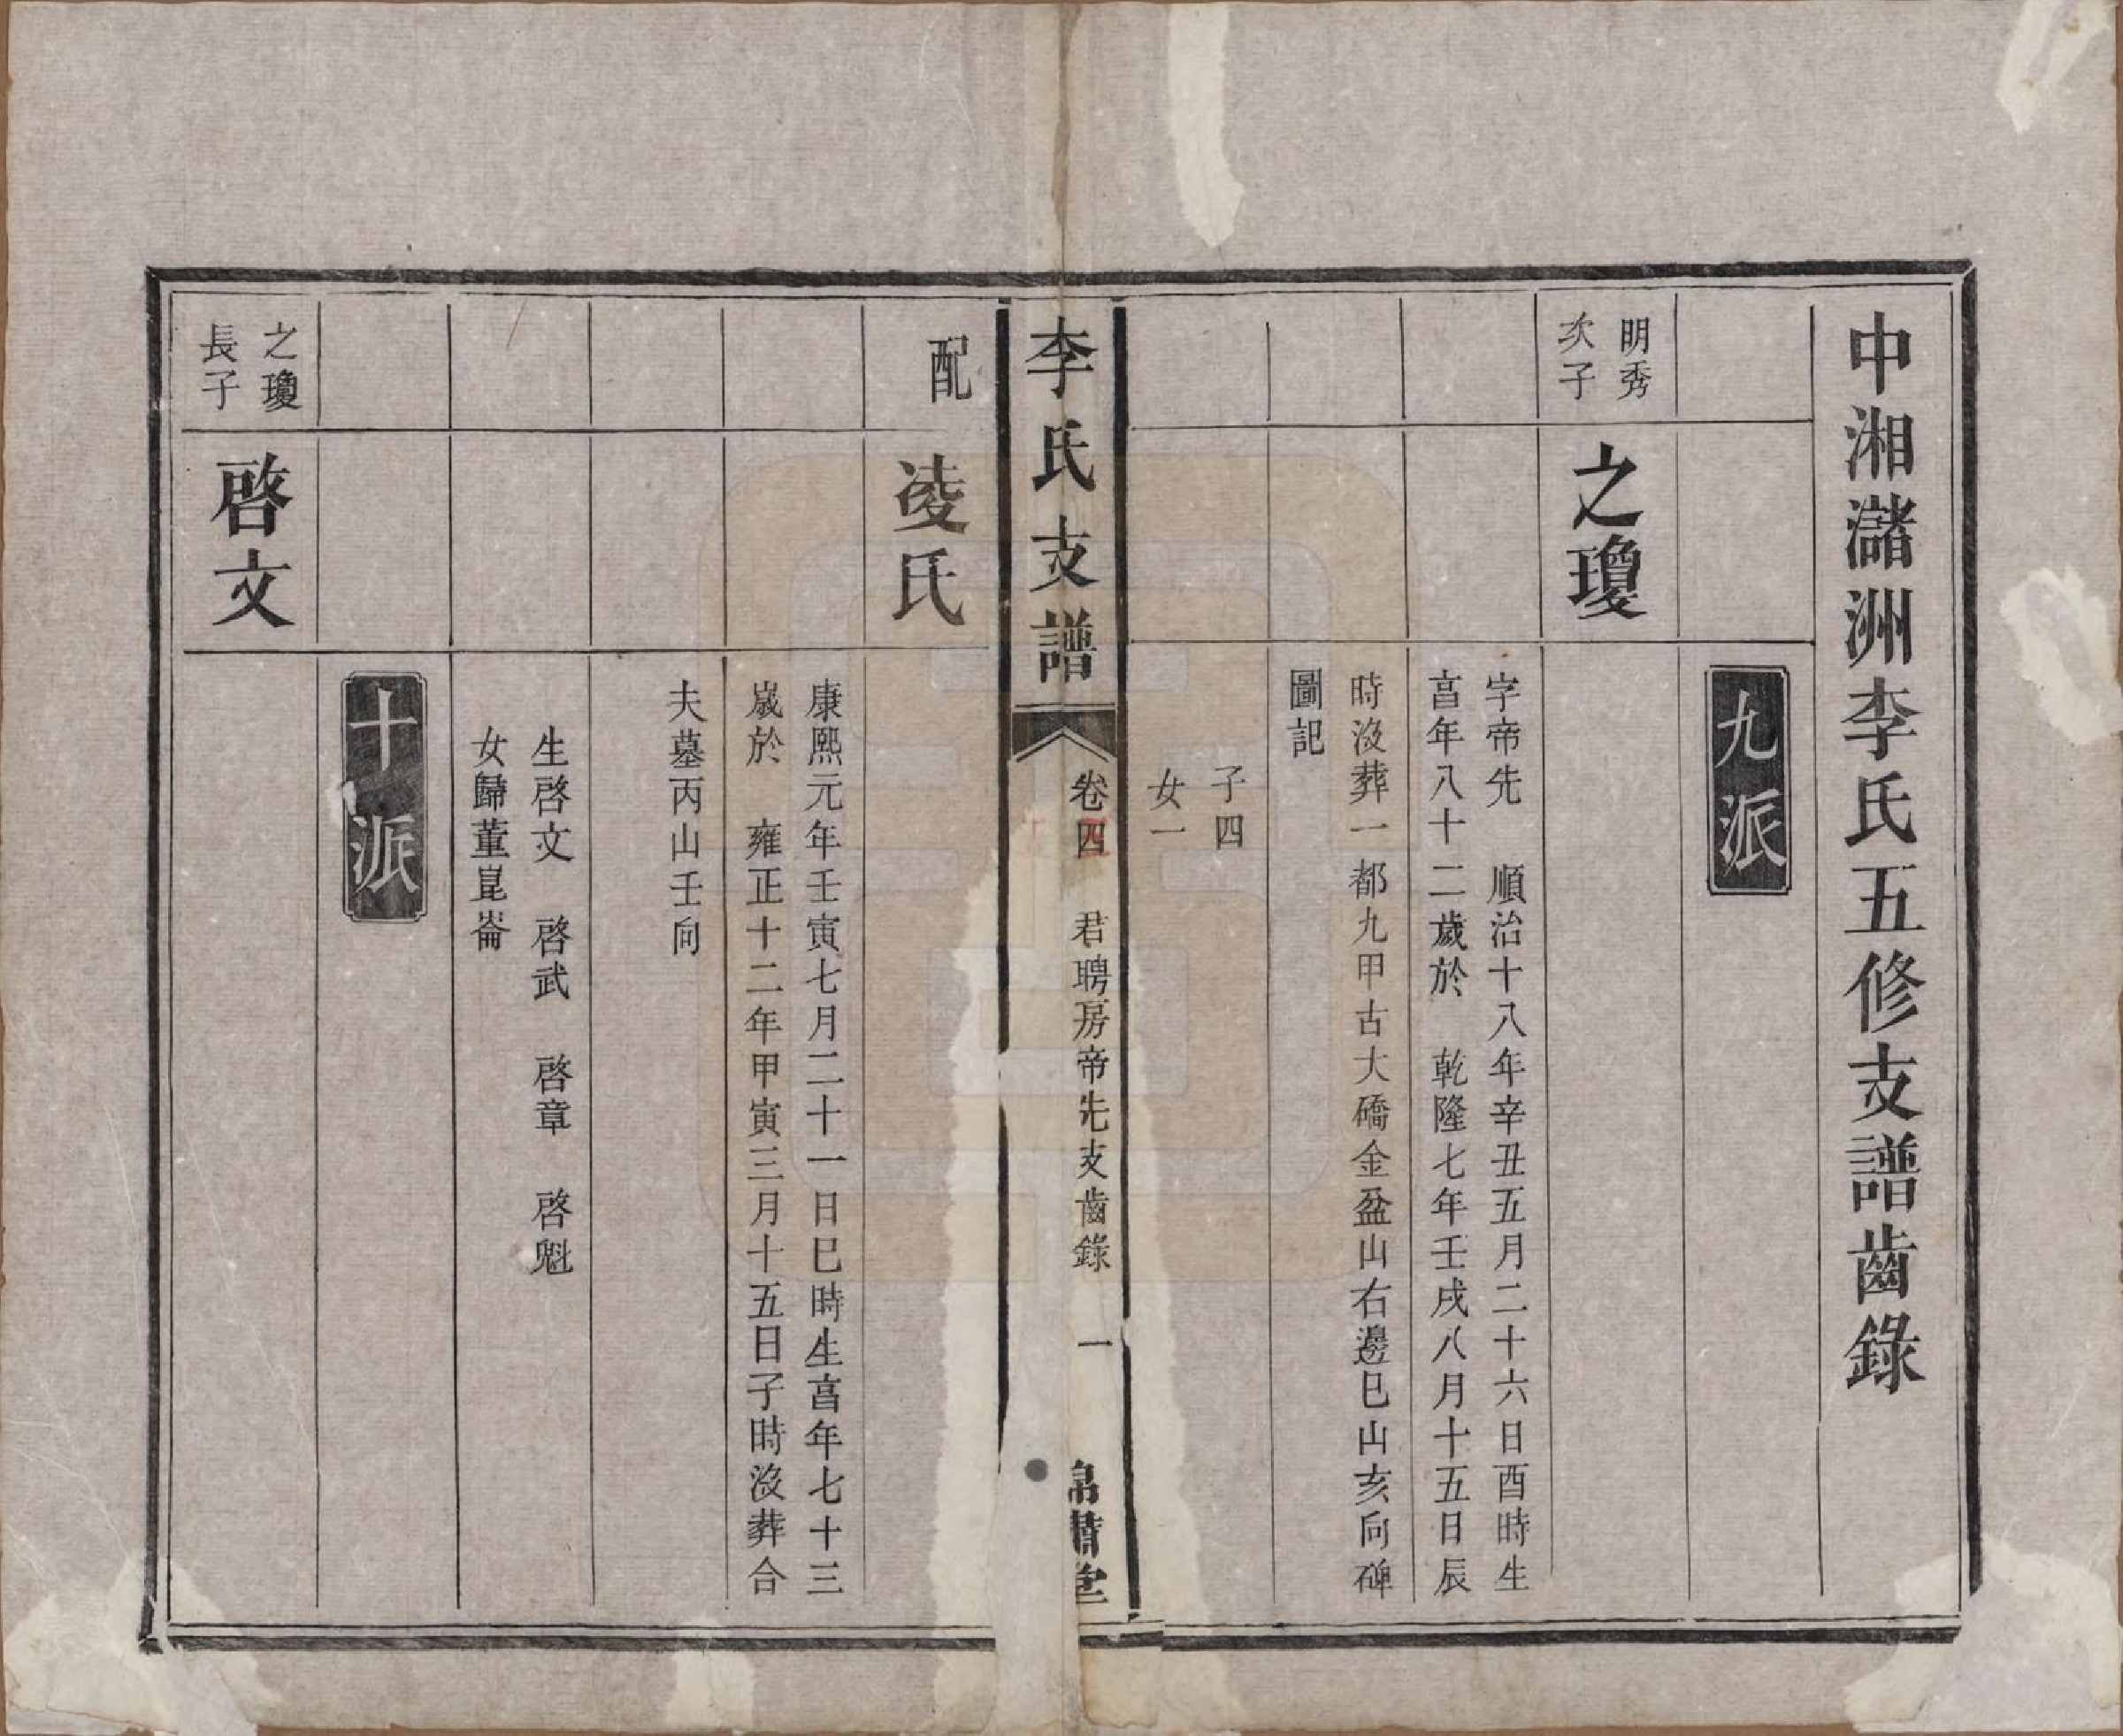 中湘瀦洲李氏五修支譜齒錄
九派
明秀
次子
之瓊
字帝先　順治十八年辛丑五月二十六日酉時生
亯年八十二歲於　乾隆七年壬戌八月十五日辰
時沒葬一都九甲古大礄金盆山右邊巳山亥向碑
圖記
子四
女一
李氏支譜
卷四　君聘房帝先支齒錄　一
堂
配
凌氏
康熙元年壬寅七月二十一日巳時生亯年七十三
歲於　雍正十二年甲寅三月十五日子時沒葬合
夫墓丙山壬向
生啓文　啓武　啓章　啓魁
女歸董崑崙
十派
之瓊
長子
啓文